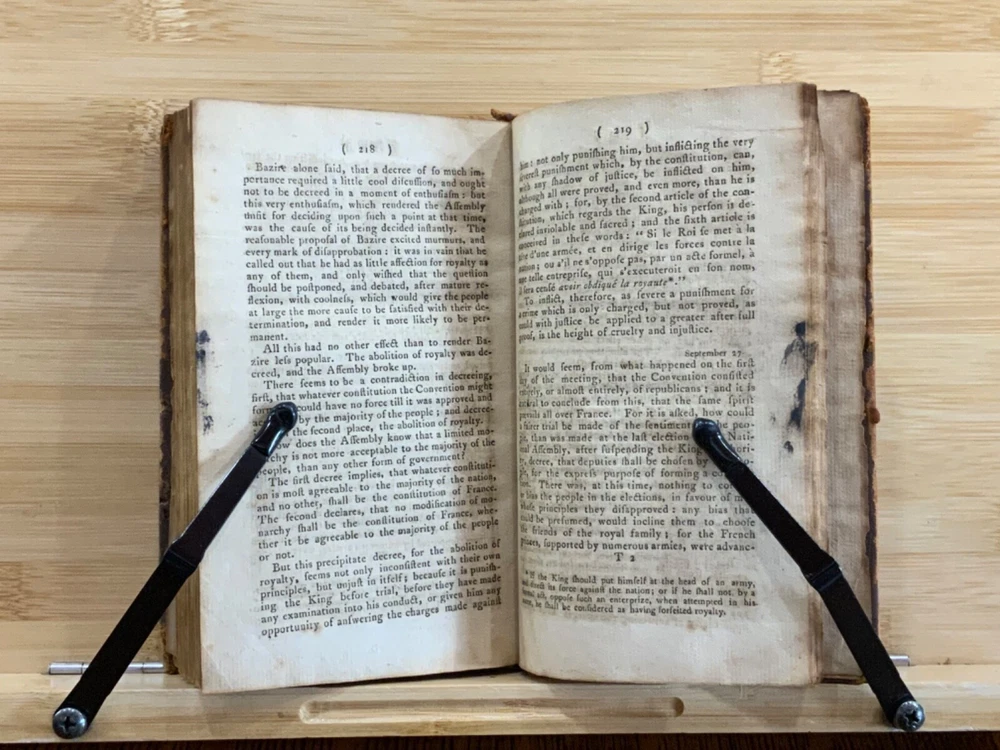 ( 218 )
Bazire alone said, that a decree of ſo much im-
portance required a little cool diſcuſſion, and ought
not to be decreed in a moment of enthuſiaſm: but
this very enthuſiaſm, which rendered the Aſſembly
unfit for deciding upon ſuch a point at that time,
was the cauſe of its being decided inſtantly. The
reaſonable propoſal of Bazire excited murmurs, and
every mark of diſapprobation: it was in vain that he
called out that he had as little affection for royalty as
any of them, and only wiſhed that the queſtion
ſhould be poſtponed, and debated, after mature re-
flexion, with coolneſs, which would give the people
at large the more cauſe to be ſatisfied with their de-
termination, and render it more likely to be per-
manent.
All this had no other effect than to render Ba-
zire leſs popular. The abolition of royalty was de-
creed, and the Aſſembly broke up.
There ſeems to be a contradiction in decreeing,
firſt, that whatever conſtitution the Convention might
ould have no force till it was approved and
by the majority of the people; and decree-
the ſecond place, the abolition of royalty.
ow does the Aſſembly know that a limited mo-
chy is not more acceptable to the majority of the
people, than any other form of government?
The firſt decree implies, that whatever conſtituti-
on is moſt agreeable to the majority of the nation,
and no other, ſhall be the conſtitution of France.
The ſecond declares, that no modification of mo-
narchy ſhall be the conſtitution of France, whe-
ther it be agreeable to the majority of the people
or not.
But this precipitate decree, for the abolition of
royalty, ſeems not only inconſiſtent with their own
principles, but unjuſt in itſelf; becauſe it is puniſh-
ing the King before trial, before they have made
any examination into his conduct, or given him any
opportunity of anſwering the charges made againſt
( 219 )
him: not only puniſhing him, but inflicting the very
ſevereſt puniſhment which, by the conſtitution, can,
with any ſhadow of juſtice, be inflicted on him,
although all were proved, and even more, than he is
charged with; for, by the ſecond article of the con-
ſtitution, which regards the King, his perſon is de-
clared inviolable and ſacred; and the ſixth article is
conceived in theſe words: "Si le Roi ſe met à la
tête d'une armée, et en dirige les forces contre la
nation; ou s'il ne s'oppoſe pas, par un acte formel, à
une telle entrepriſe, qui s'executeroit en ſon nom,
il ſera cenſé avoir abdiqué la royaute*."
To inflict, therefore, as ſevere a puniſhment for
a crime which is only charged, but not proved, as
could with juſtice be applied to a greater after full
proof, is the height of cruelty and injuſtice.
September 27.
It would ſeem, from what happened on the firſt
day of the meeting, that the Convention conſiſted
entirely, or almoſt entirely, of republicans; and it is
natural to conclude from this, that the ſame ſpirit
prevails all over France. For it is aſked, how could
a fairer trial be made of the ſentiment he peo-
ple, than was made at the laſt election Nati-
onal Aſſembly, after ſuſpending the King
decree, that deputies ſhall be choſen by
ple, for the expreſs purpoſe of forming a
There was, at this time, nothing to
bias the people in the elections, in favour of
whoſe principles they diſapproved: any bias that
could be preſumed, would incline them to chooſe
the friends of the royal family; for the French
princes, ſupported by numerous armies, were advanc-
P 2
* If the King ſhould put himſelf at the head of an army,
and direct its force againſt the nation; or if he ſhall not, by a
formal act, oppoſe ſuch an enterprize, when attempted in his
name, he ſhall be conſidered as having forfeited royalty.